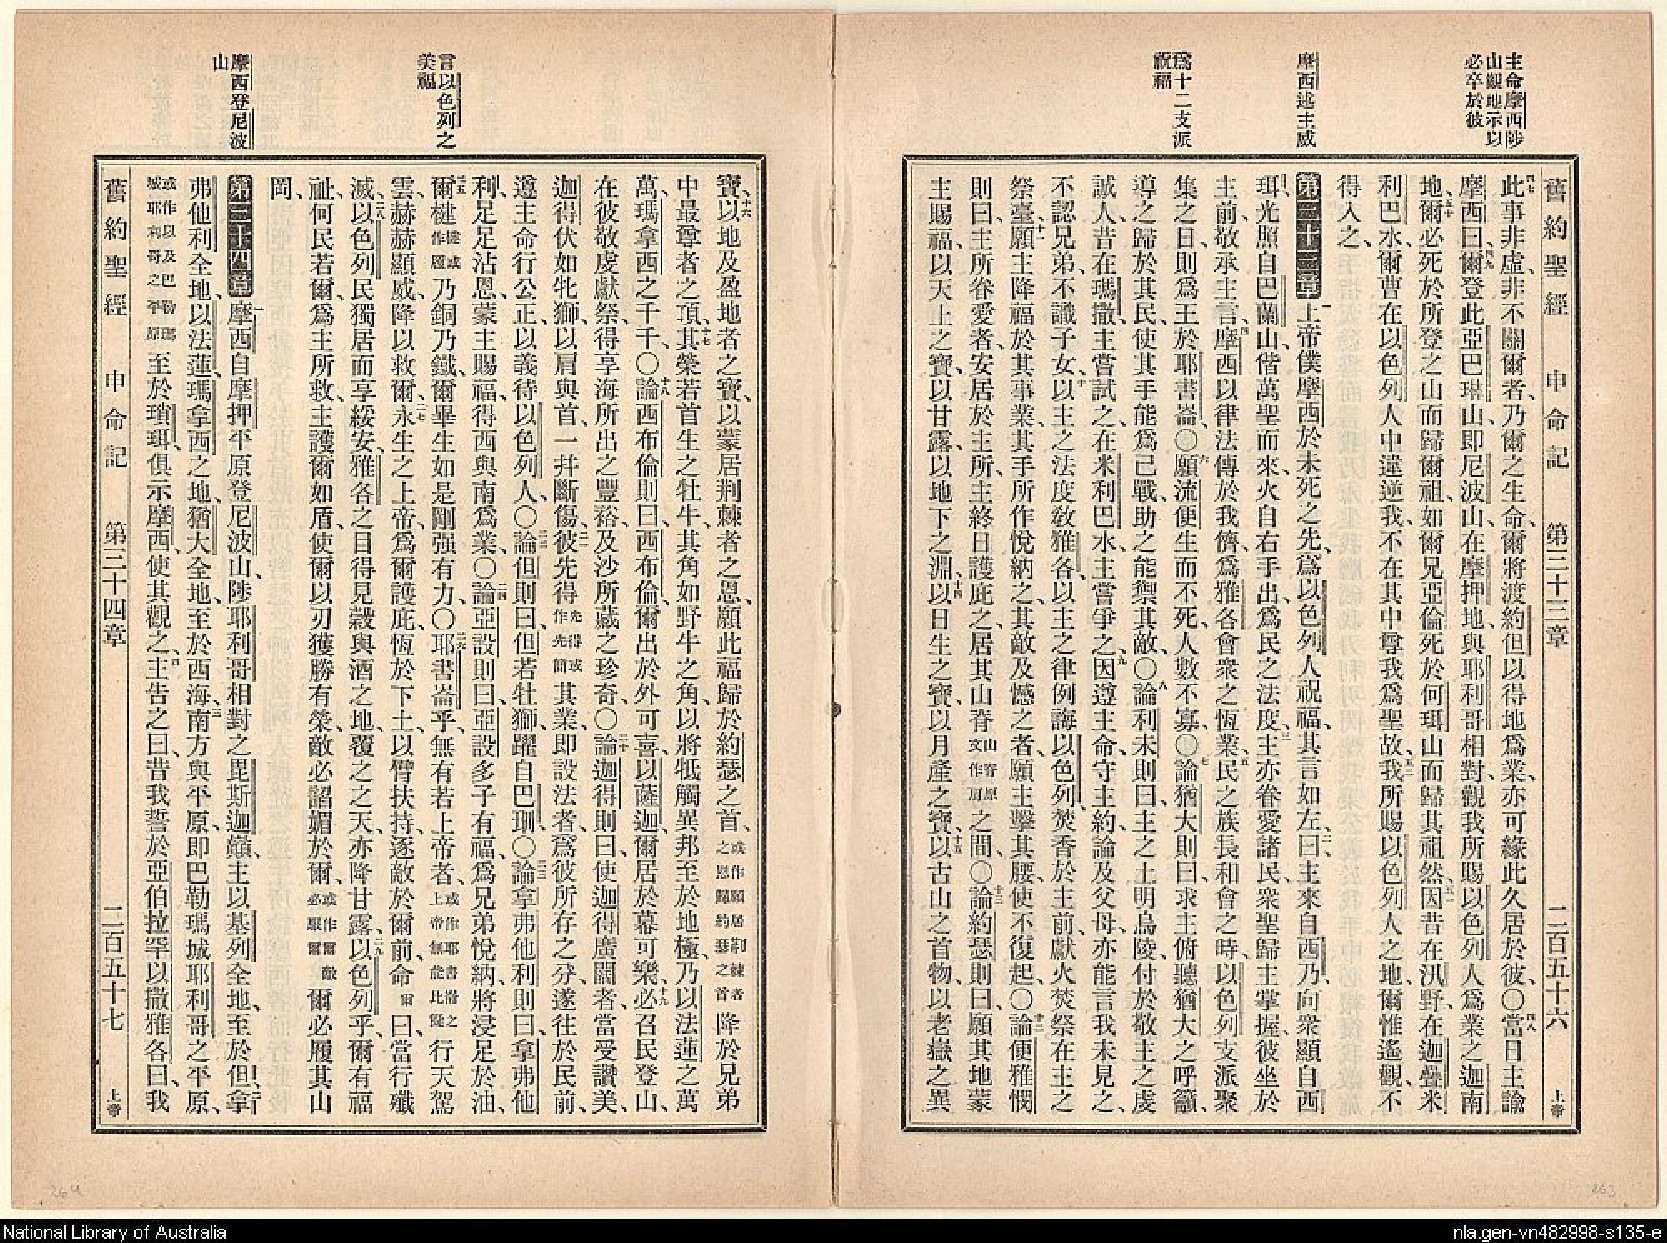 主命摩西陟
山觀地示以
必卒於彼
摩西述主威
爲十二支派
祝福
舊約聖經 申命記 第三十三章 二百五十六 上帝
此事非虛、非不關爾者、乃爾之生命、爾將渡約但以得地爲業、亦可緣此久居於彼、〇當日主諭
摩西曰、爾登此亞巴琳山、即尼波山、在摩押地、與耶利哥相對、觀我所賜以色列人爲業之迦南
地、爾必死於所登之山、而歸爾祖、如爾兄亞倫死於何珥山而歸其祖然、因昔在汛野、在迦疊米
利巴水、爾曹在以色列人中違逆我、不在其中尊我爲聖故、我所賜以色列人之地、爾惟遙觀、不
得入之、
第三十三章 上帝僕摩西於未死之先、爲以色列人祝福、其言如左、曰、主來自西乃、向衆顯自西
珥、光照自巴蘭山、偕萬聖而來、火自右手出、爲民之法度、主亦眷愛諸民、衆聖歸主掌握、彼坐於
主前、敬承主言、摩西以律法傳於我儕、爲雅各會衆之恆業、民之族長和會之時、以色列支派聚
集之日、則爲王於耶書崙、〇願流便生而不死、人數不寡、〇論猶大則曰、求主俯聽猶大之呼籲、
導之歸於其民、使其手能爲己戰、助之能禦其敵、〇論利未則曰、主之土明烏陵付於敬主之虔
誠人、昔在瑪撒主嘗試之、在米利巴水主嘗爭之、因遵主命、守主約、論及父母、亦能言我未見之、
不認兄弟、不識子女、以主之法度敎雅各、以主之律例誨以色列、焚香於主前、獻火焚祭在主之
祭臺、願主降福於其事業、其手所作悅納之、其敵及憾之者、願主擊其腰、使不復起、〇論便雅憫
則曰、主所眷愛者、安居於主所、主終日護庇之、居其山脊山脊原文作肩之間、〇論約瑟則曰、願其地蒙
主賜福、以天上之寶、以甘露、以地下之淵、以日生之寶、以月產之寶、以古山之首物、以老嶽之異
言以色列之
美福
摩西登尼波
山
寶、以地及盈地者之寶、以蒙居荆棘者之恩、願此福歸於約瑟之首、或作願居荆棘者之恩歸約瑟之首降於兄弟
中最尊者之頂、其榮若首生之牡牛、其角如野牛之角、以將牴觸異邦、至於地極、乃以法蓮之萬
萬、瑪拿西之千千、〇論西布倫則曰、西布倫、爾出於外可喜、以薩迦爾居於幕可樂、必召民登山、
在彼敬虔獻祭、得享海所出之豐裕、及沙所藏之珍奇、〇論迦得則曰、使迦得廣闊者、當受讚美、
迦得伏如牝獅、以肩與首一幷斷傷、彼先得先得或作先簡其業、即設法者爲彼所存之分、遂往於民前、
遵主命行公正、以義待以色列人、〇論但則曰、但若牡獅躍自巴珊、〇論拿弗他利則曰、拿弗他
利足足沾恩、蒙主賜福、得西與南爲業、〇論亞設則曰、亞設多子有福、爲兄弟悅納、將浸足於油、
爾楗楗或作履乃銅乃鐵、爾畢生如是剛强有力、〇耶書崙乎、無有若上帝者、或作耶書崙之上帝無能比擬行天駕
雲、赫赫顯威、降以救爾、永生之上帝、爲爾護庇、恆於下土以臂扶持、逐敵於爾前、命爾曰、當行殲
滅、以色列民獨居而享綏安、雅各之目、得見穀與酒之地、覆之之天、亦降甘露、以色列乎、爾有福
祉、何民若爾、爲主所救、主護爾如盾、使爾以刃獲勝有榮、敵必諂媚於爾、或作爾敵必羸爾爾必履其山
岡、
第三十四章 摩西自摩押平原登尼波山、陟耶利哥相對之毘斯迦巔、主以基列全地、至於但、拿
弗他利全地、以法蓮、瑪拿西之地、猶大全地、至於西海、南方與平原、即巴勒瑪城耶利哥之平原、
或作以及巴勒瑪城耶利哥之平原至於瑣珥、俱示摩西、使其觀之、主告之曰、昔我誓於亞伯拉罕、以撒、雅各曰、我
舊約聖經 申命記 第三十四章 二百五十七 上帝
264
263
National Library of Australia
nla.gen-vn482998-s135-e